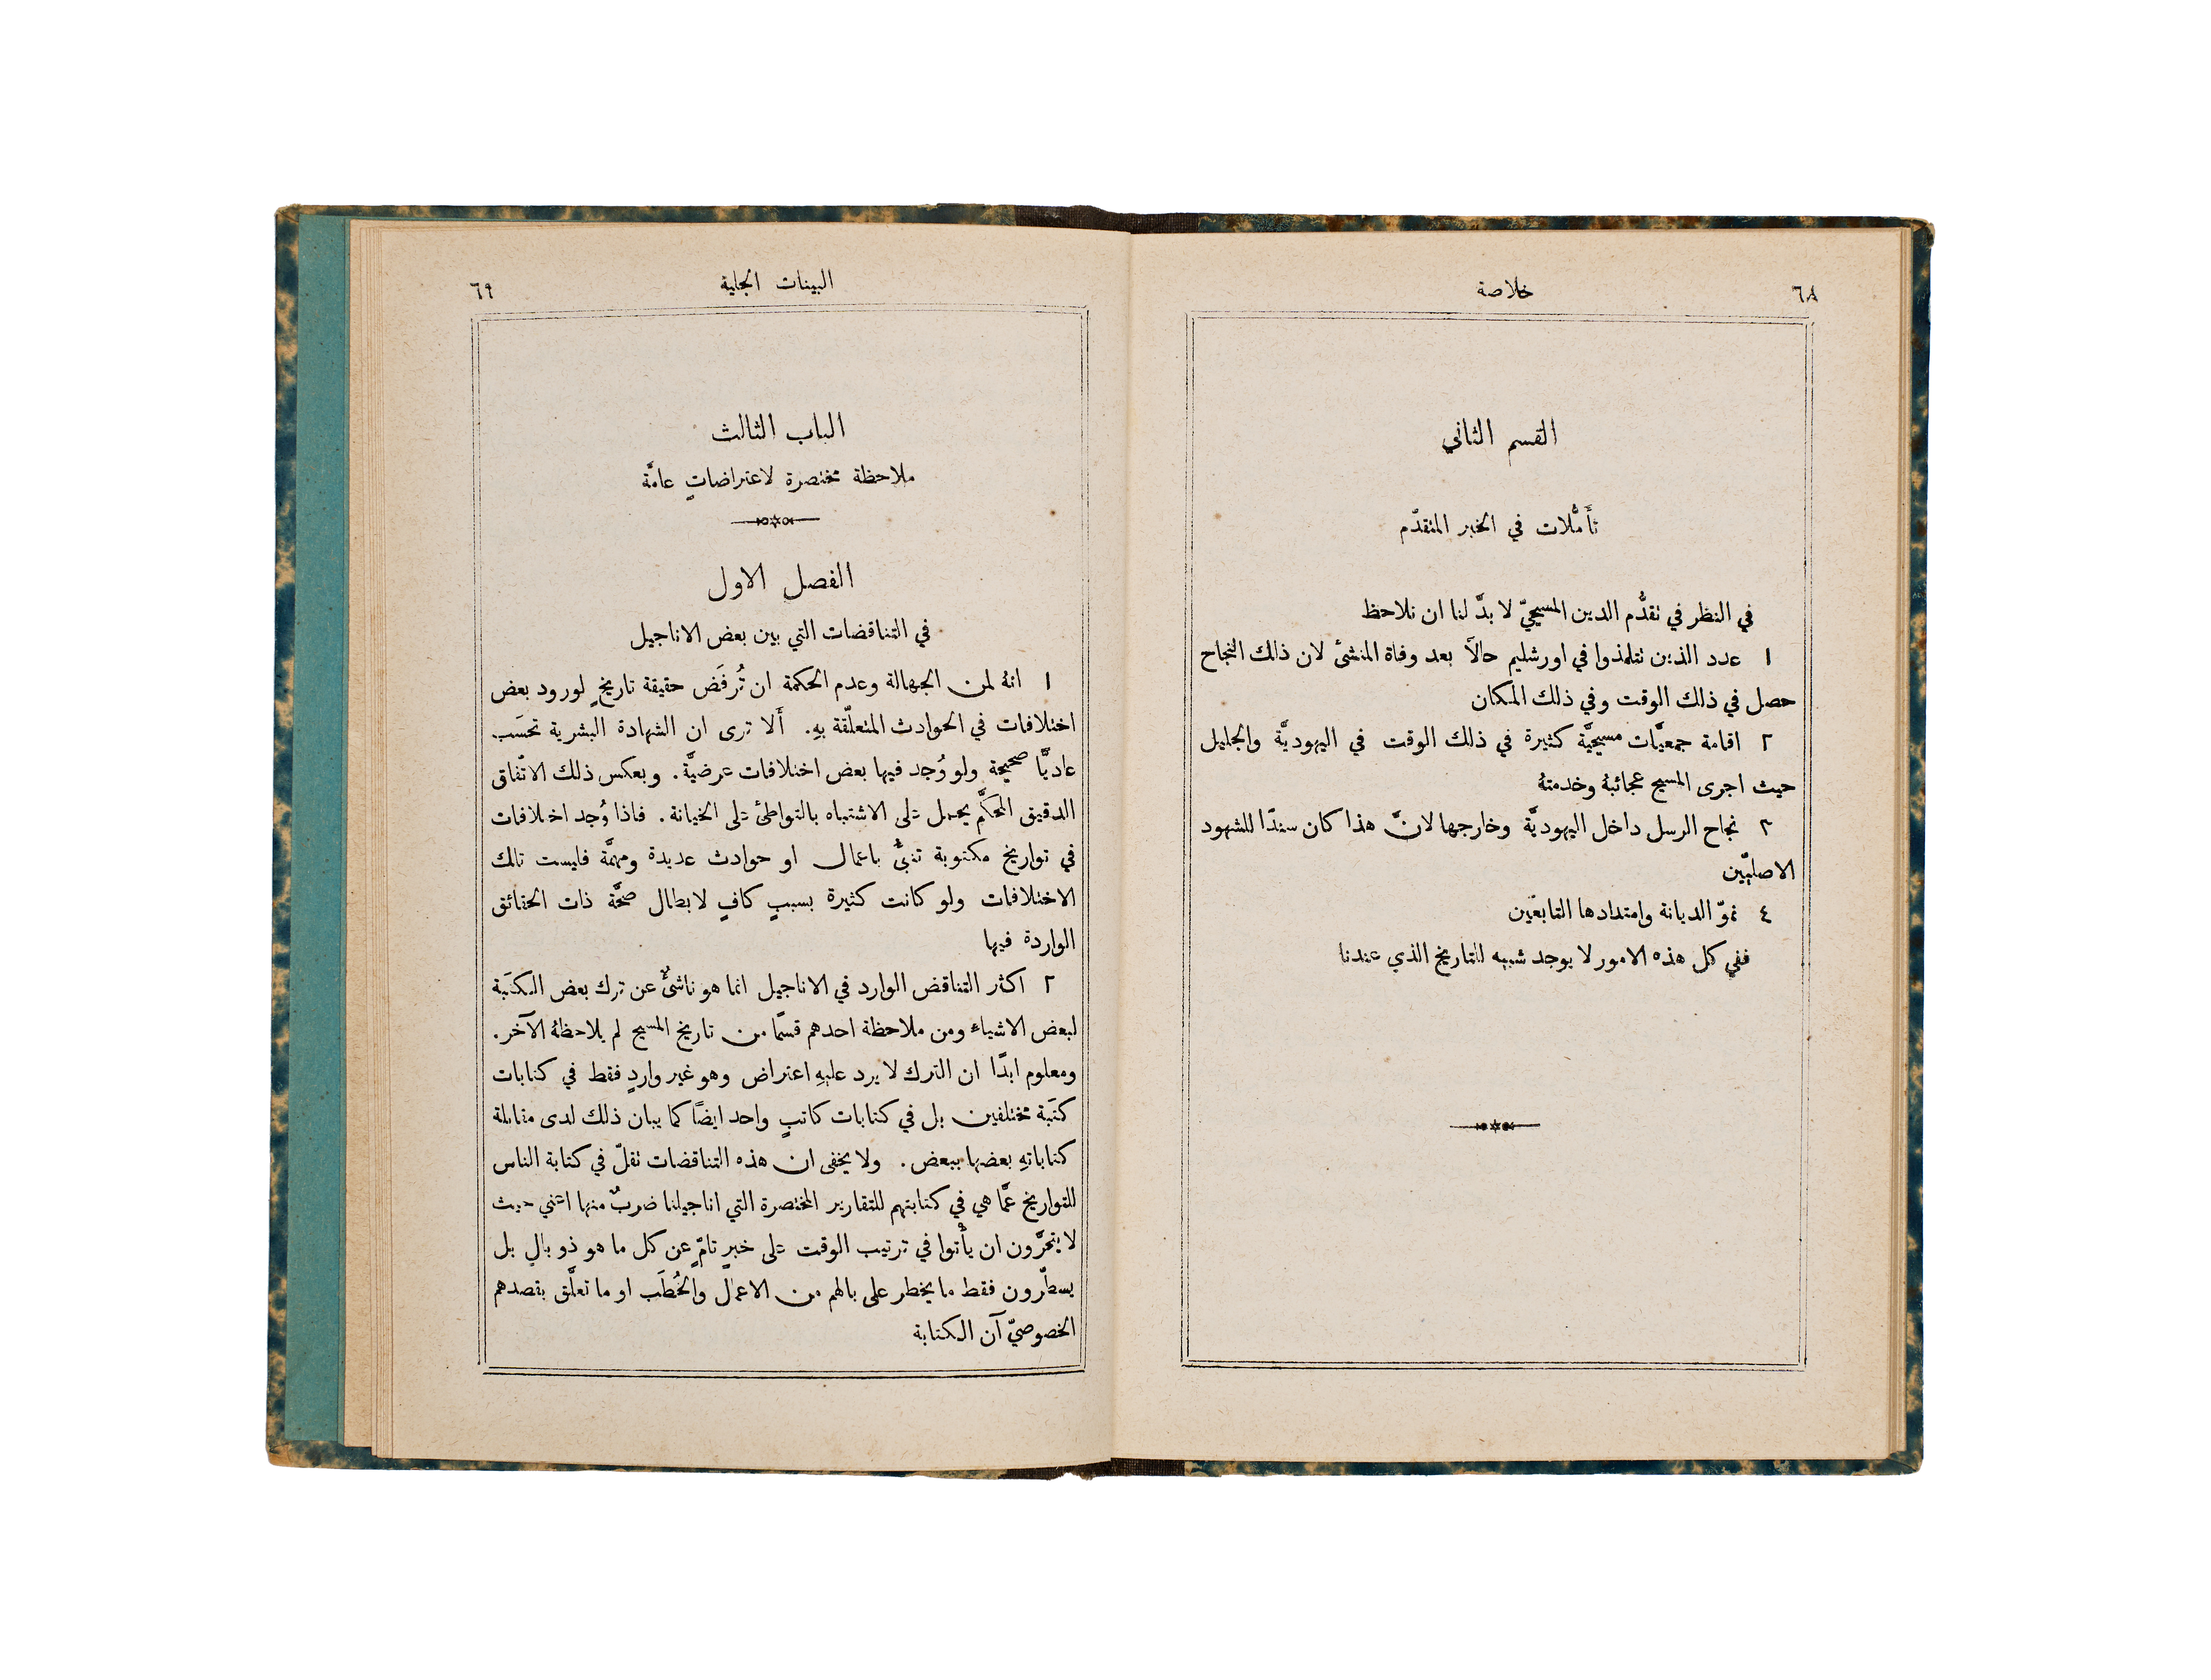 ٦٨
خلاصة
القسم الثاني
تأَمُّلات في الخبر المتقدّم
في النظر في تقدُّم الدين المسيحيّ لا بدَّ لنا ان نلاحظ
١ عدد الذين تتلمذوا في اورشليم حالاً بعد وفاة المنشئ لان ذلك النجاح
حصل في ذلك الوقت وفي ذلك المكان
٢ اقامة جمعيَّات مسيحيَّة كثيرة في ذلك الوقت في اليهوديَّة والجليل
حيث اجرى المسيح عجائبهُ وخدمتهُ
٣ نجاح الرسل داخل اليهوديَّة وخارجها لانَّ هذا كان سندًا للشهود
الاصليّين
٤ نموّ الديانة وامتدادها التابعَين
ففي كل هذه الامور لا يوجد شبيه للتاريخ الذي عندنا
البينات الجلية
٦٩
الباب الثالث
ملاحظة مختصرة لاعتراضاتٍ عامَّة
الفصل الاول
في التناقضات التي بين بعض الاناجيل
١ انهُ لمن الجهالة وعدم الحكمة ان تُرفَض حقيقة تاريخٍ لورود بعض
اختلافات في الحوادث المتعلّقة بهِ. أَلا ترى ان الشهادة البشرية تحسَب
عاديًّا صحيحة ولو وُجد فيها بعض اختلافات عرضيَّة. وبعكس ذلك الاتّفاق
الدقيق المحكَّم يحمل على الاشتباه بالتواطئ على الخيانة. فاذا وُجد اختلافات
في تواريخ مكتوبة تنبئُ باعمال او حوادث عديدة ومهمَّة فليست تلك
الاختلافات ولو كانت كثيرة بسببٍ كافٍ لابطال صحَّة ذات الحقائق
الواردة فيها
٢ اكثر التناقض الوارد في الاناجيل انما هو ناشئٌ عن ترك بعض الكتَبة
لبعض الاشياء ومن ملاحظة احدهم قسمًا من تاريخ المسيح لم يلاحظهُ الآخر.
ومعلوم ابدًا ان الترك لا يرد عليهِ اعتراض وهو غير واردٍ فقط في كتابات
كتَبة مختلفين بل في كتابات كاتبٍ واحد ايضًا كما يبان ذلك لدى مقابلة
كتاباتهِ بعضها ببعض. ولا يخفى ان هذه التناقضات تقلّ في كتابة الناس
للتواريخ عمَّا هي في كتابتهم للتقارير المختصرة التي اناجيلنا ضربٌ منها اعني حيث
لا يتحرَّون ان يأْتوا في ترتيب الوقت على خبرٍ تامّ عن كل ما هو ذو بالٍ بل
يسطّرون فقط ما يخطر على بالهم من الاعمال والخُطَب او ما تعلَّق بقصدهم
الخصوصيّ آن الكتابة